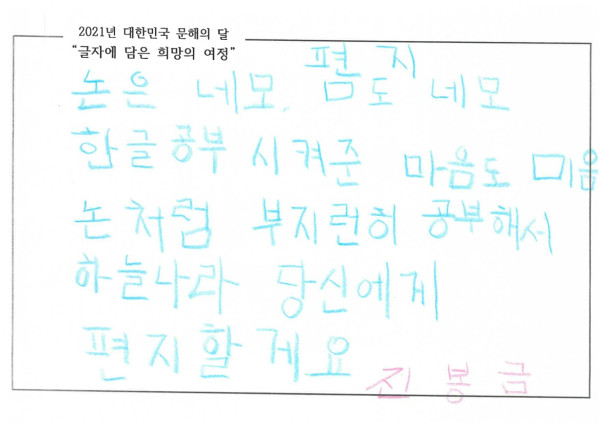 2021년 대한민국 문해의 달
“글자에 담은 희망의 여정”
편지
논은 네모, 밈도 네모
한글공부 시켜준 마음도 미음
논처럼 부지런히 공부해서
하늘나라 당신에게
편지할게요
진봉금